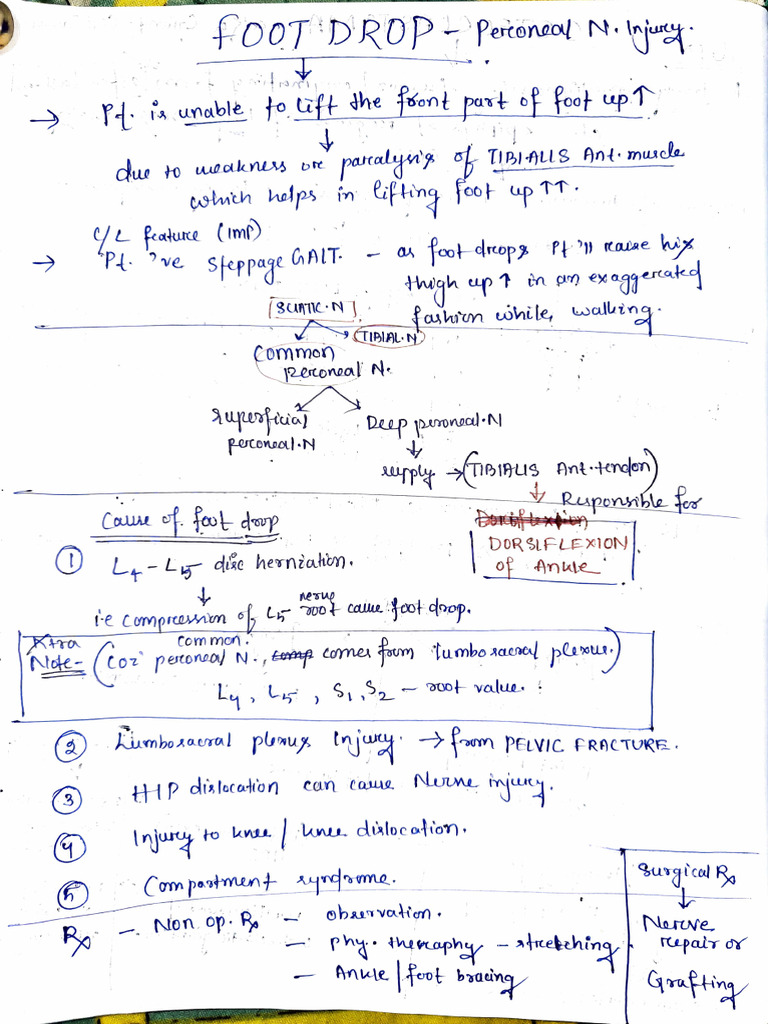 FOOT DROP - Peroneal N. Injury.
→ Pt. is unable to lift the front part of foot up ↑
due to weakness or paralysis of TIBIALIS Ant. muscle
which helps in lifting foot up ↑↑.
C/L feature (Imp)
→ Pt. 've Steppage GAIT. - as foot drops Pt 'll raise his
thigh up ↑ in an exaggerated
fashion while, walking.
SCIATIC. N
TIBIAL. N
Common
peroneal N.
Superficial
peroneal. N
Deep peroneal. N
supply → (TIBIALIS Ant. tendon)
Responsible for
DORSIFLEXION
of Ankle
Cause of foot drop
① L4 - L5 disc herniation.
i.e compression of L5 nerve root cause foot drop.
Xtra
Note- (Coz' common. peroneal N., comp comes from lumbosacral plexus.)
L4, L5, S1, S2 - root value.
② Lumbosacral plexus Injury. → from PELVIC FRACTURE.
③ HIP dislocation can cause Nerve injury.
④ Injury to knee / knee dislocation.
⑤ Compartment syndrome.
Rx - Non op. Rx - observation.
- Phy. theraphy - stretching
- Ankle / foot bracing
Surgical Rx
Nerve
repair or
Grafting